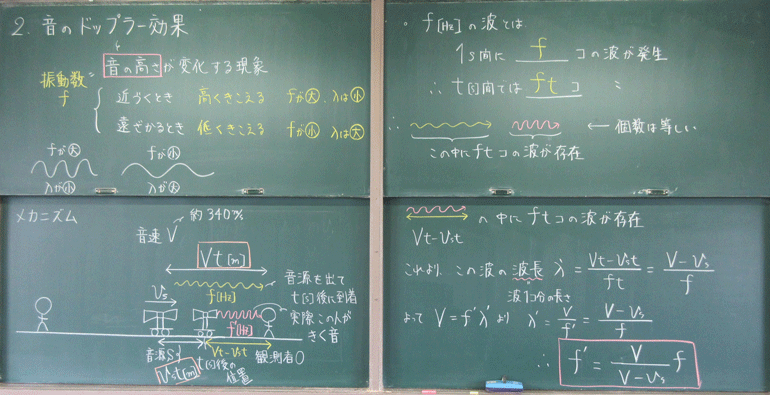 2. 音のドップラー効果
音の高さが変化する現象
振動数
f
近づくとき 高くきこえる fが大、λは小
遠ざかるとき 低くきこえる fが小 λは大
fが大 fが小
λが小 λが大
メカニズム
約340m/s
音速V
Vt[m]
f[Hz]
音源を出て
t[s]後に到着
vs
f'[Hz]
実際この人が
きく音
音源S
t[s]後の
位置
Vt-vst
観測者O
vst[m]
。f[Hz]の波とは
1s間に f コの波が発生
∴ t[s]間では ft コ 〃
∴ ← 個数は等しい
この中にftコの波が存在
の中にftコの波が存在
Vt-vst
これより、この波の波長 λ' = Vt-vst/ft = V-vs/f
波1コ分の長さ
よって V=f'λ' より λ' = V/f' = V-vs/f
∴ f' = V/V-vs f